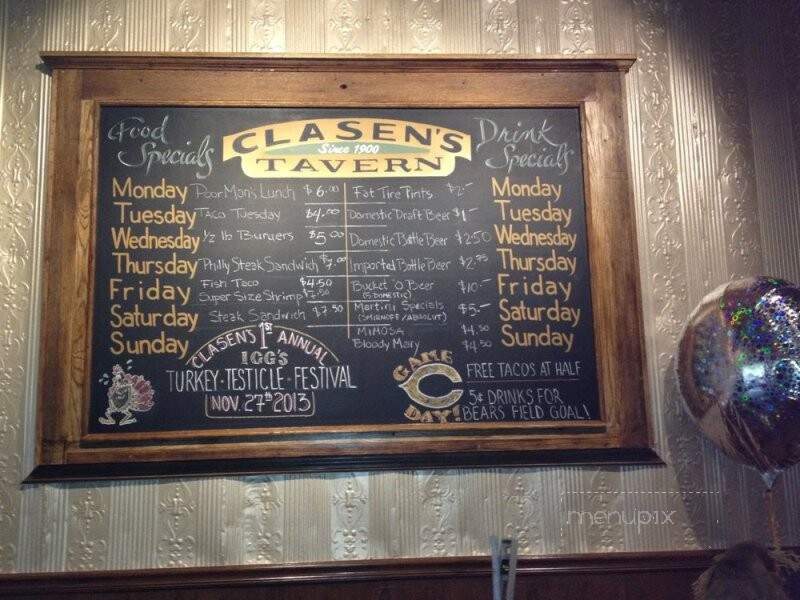 Food Specials
CLASEN'S
Since 1900
TAVERN
Drink Specials
Monday Poor Man's Lunch $6.00 Fat Tire Pints $2- Monday
Tuesday Taco Tuesday $4.00 Domestic Draft Beer $1- Tuesday
Wednesday 1/2 lb Burgers $5.00 Domestic Bottle Beer $2.50 Wednesday
Thursday Philly Steak Sandwich $7.00 Imported Bottle Beer $2.75 Thursday
Friday Fish Taco $4.50 Bucket 'O Beer $10- Friday
Super Size Shrimp $7.50 (5 DOMESTIC)
Saturday Steak Sandwich $7.50 Martini Specials $5- Saturday
(SMIRNOFF/ABSOLUT)
Sunday MIMOSA $4.50 Sunday
Bloody Mary $4.50
CLASEN'S 1ST ANNUAL
IGG'S
TURKEY·TESTICLE·FESTIVAL
NOV. 27th 2013
GAME
C
DAY!
FREE TACOS AT HALF
5¢ DRINKS FOR
BEARS FIELD GOAL!
menupix